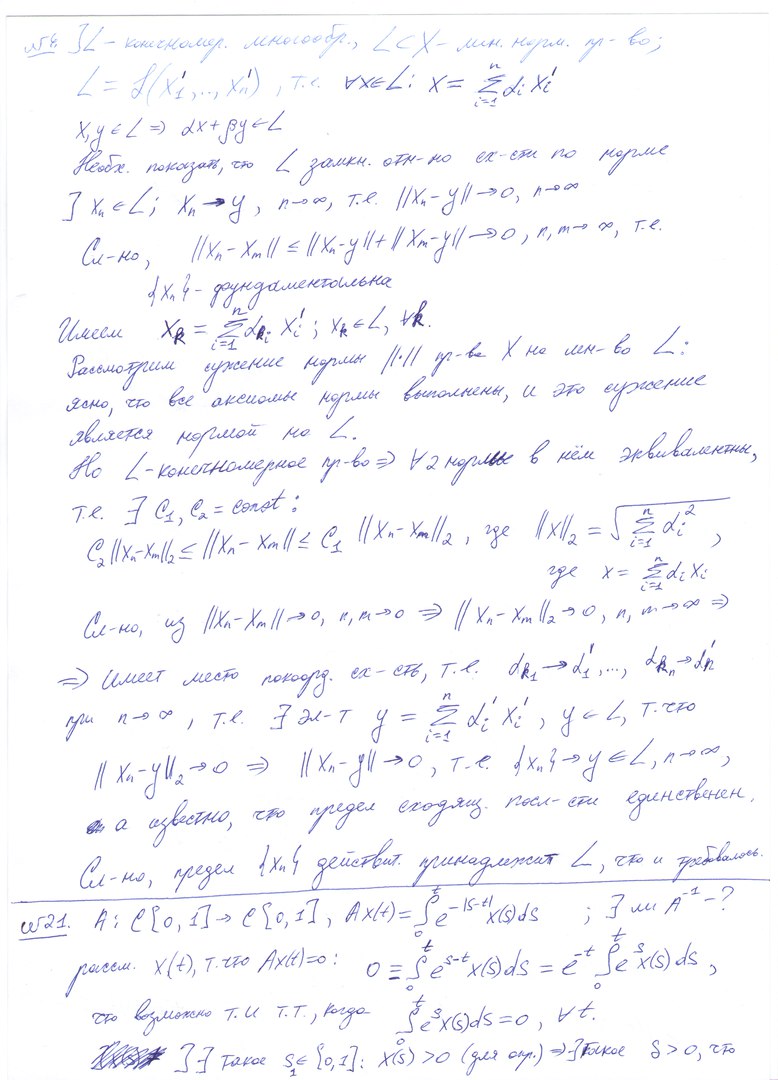 №4. ] L - конечномер. многообр., L ⊂ X - лин. норм. пр-во;
L = ℒ(x₁',...,xₙ'), т.е. ∀x∈L: x = ∑ᵢ₌₁ⁿ αᵢ xᵢ'
x,y ∈ L ⇒ αx + βy ∈ L
Необх. показать, что L замкн. отн-но сх-сти по норме
] xₙ ∈ L; xₙ → y, n→∞, т.е. ||xₙ-y|| → 0, n→∞
Сл-но, ||xₙ - xₘ|| ≤ ||xₙ-y|| + ||xₘ-y|| → 0, n,m→∞, т.е.
{xₙ} - фундаментальна
Имеем xₖ = ∑ᵢ₌₁ⁿ αₖᵢ xᵢ'; xₖ ∈ L, ∀k.
Рассмотрим сужение нормы ||·|| пр-ва X на мн-во L:
ясно, что все аксиомы нормы выполнены, и это сужение
является нормой на L.
Но L - конечномерное пр-во ⇒ ∀ 2 нормы в нём эквивалентны,
т.е. ∃ C₁, C₂ = const:
C₂||xₙ-xₘ||₂ ≤ ||xₙ-xₘ|| ≤ C₁ ||xₙ-xₘ||₂, где ||x||₂ = √(∑ᵢ₌₁ⁿ αᵢ²),
где x = ∑ᵢ₌₁ⁿ αᵢ xᵢ
Сл-но, из ||xₙ-xₘ|| → 0, n,m→0 ⇒ ||xₙ-xₘ||₂ → 0, n,m→∞ ⇒
⇒ Имеет место покоорд. сх-сть, т.е. αₖ₁ → α₁',..., αₖₙ → αₙ'
при n→∞, т.е. ∃ эл-т y = ∑ᵢ₌₁ⁿ αᵢ' xᵢ', y ∈ L, т.что
||xₙ-y||₂ → 0 ⇒ ||xₙ-y|| → 0, т.е. {xₙ} → y ∈ L, n→∞,
а известно, что предел сходящ. посл-сти единственен.
Сл-но, предел {xₙ} действит. принадлежит L, что и требовалось.
№21. A: C[0,1] → C[0,1], Ax(t) = ∫₀ᵗ e^{-|s-t|} x(s)ds ; ∃ ли A⁻¹ - ?
рассм. x(t), т.что Ax(t)=0: 0 ≡ ∫₀ᵗ e^{s-t} x(s)ds = e^{-t} ∫₀ᵗ e^s x(s)ds,
что возможно т. и т.т., когда ∫₀ᵗ e^s x(s)ds = 0, ∀t.
] ∃ такое s₁∈[0,1]: x(s) > 0 (для опр.) ⇒ ∃ такое δ>0, что